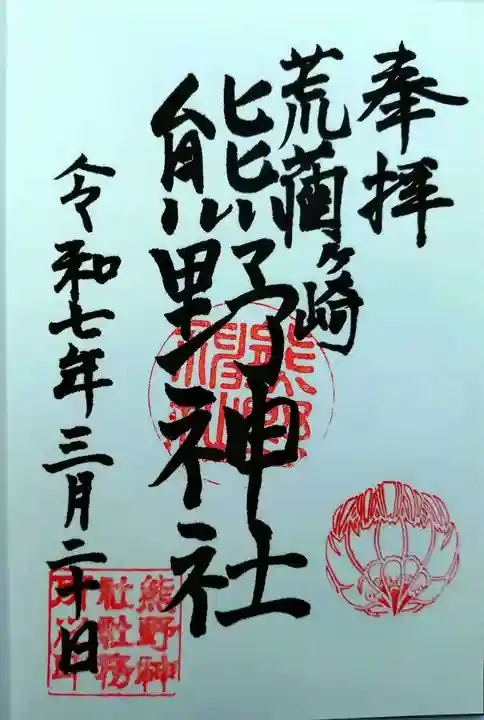 奉拝
荒薗ヶ崎
熊野神社
令和七年三月二十日
熊野神
社社務